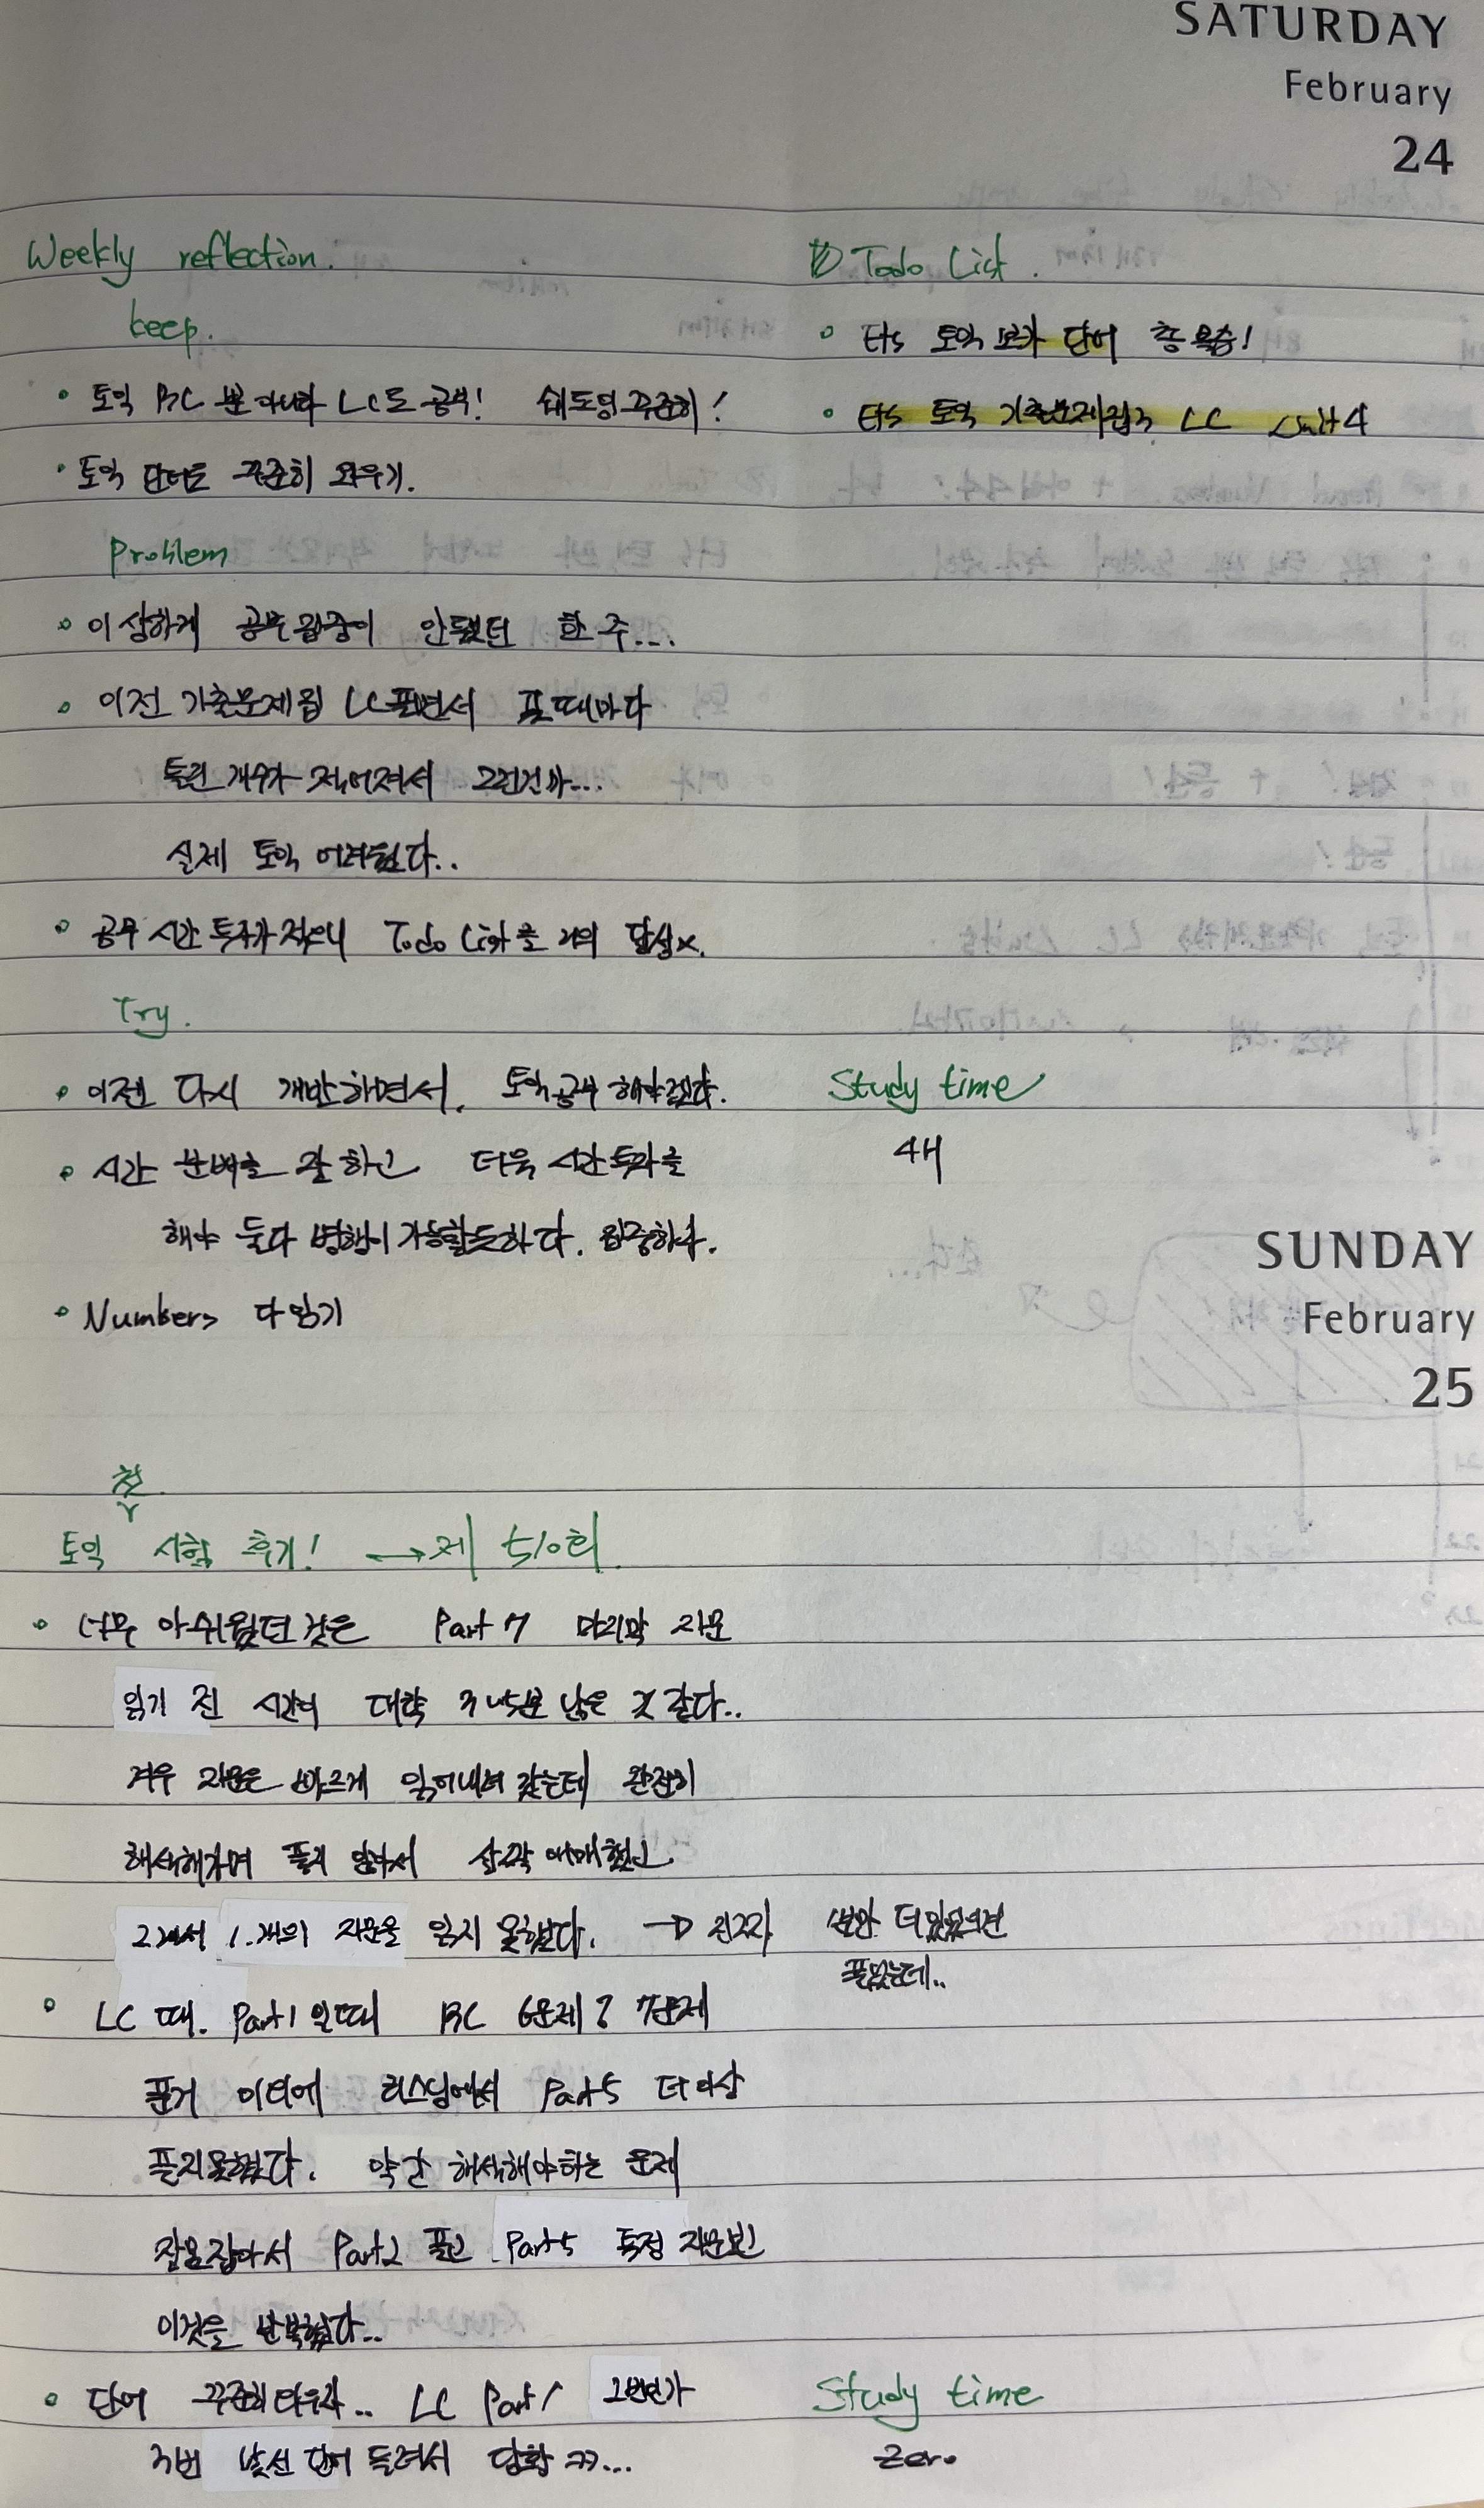 SATURDAY
February
24
Weekly reflection.
keep.
토익 RC 뿐 아니라 LC도 공부! 쉐도잉 꾸준히!
토익 단어도 꾸준히 외우기.
Problem
이상하게 공부 집중이 안됐던 한 주...
이전 기출문제집 LC 풀면서 풀 때마다
틀린 개수가 적어져서 그런건가...
실제 토익 어려웠다..
공부 시간 투자가 적으니 Todo List를 거의 달성x.
Try.
이젠 다시 개발하면서, 토익공부 해야겠다.
시간 분배를 잘 하고 더욱 시간투자를
해야 둘다 병행이 가능할듯하다. 집중하자.
Numbers 다 읽기
Todo List.
Ets 토익 보카 단어 총 복습!
Ets 토익 기출문제집3 LC Unit4
Study time
4H
SUNDAY
February
25
첫
토익 시험 후기! → 제 510회
너무 아쉬웠던 것은 Part 7 마지막 지문
읽기 전 시간이 대략 3~5분 남은 것 같다..
겨우 지문은 빠르게 읽어내려 갔는데 완전히
해석해가며 풀지 않아서 살짝 애매했고
2개에서 1개의 지문을 읽지 못했다. → 진짜 5분만 더 있었으면
풀었는데..
LC 때. Part1 일때 RC 6문제? 7문제
푼거 이외에 리스닝에서 Part5 더이상
풀지못했다. 약간 해석해야하는 문제
잘못잡아서 Part2 풀고 Part5 특정 지문보고
이것을 반복했다..
단어 꾸준히 외우자.. LC Part1 2번인가
3번 낯선 단어 들려서 당황 ㅋㅋ...
Study time
Zero